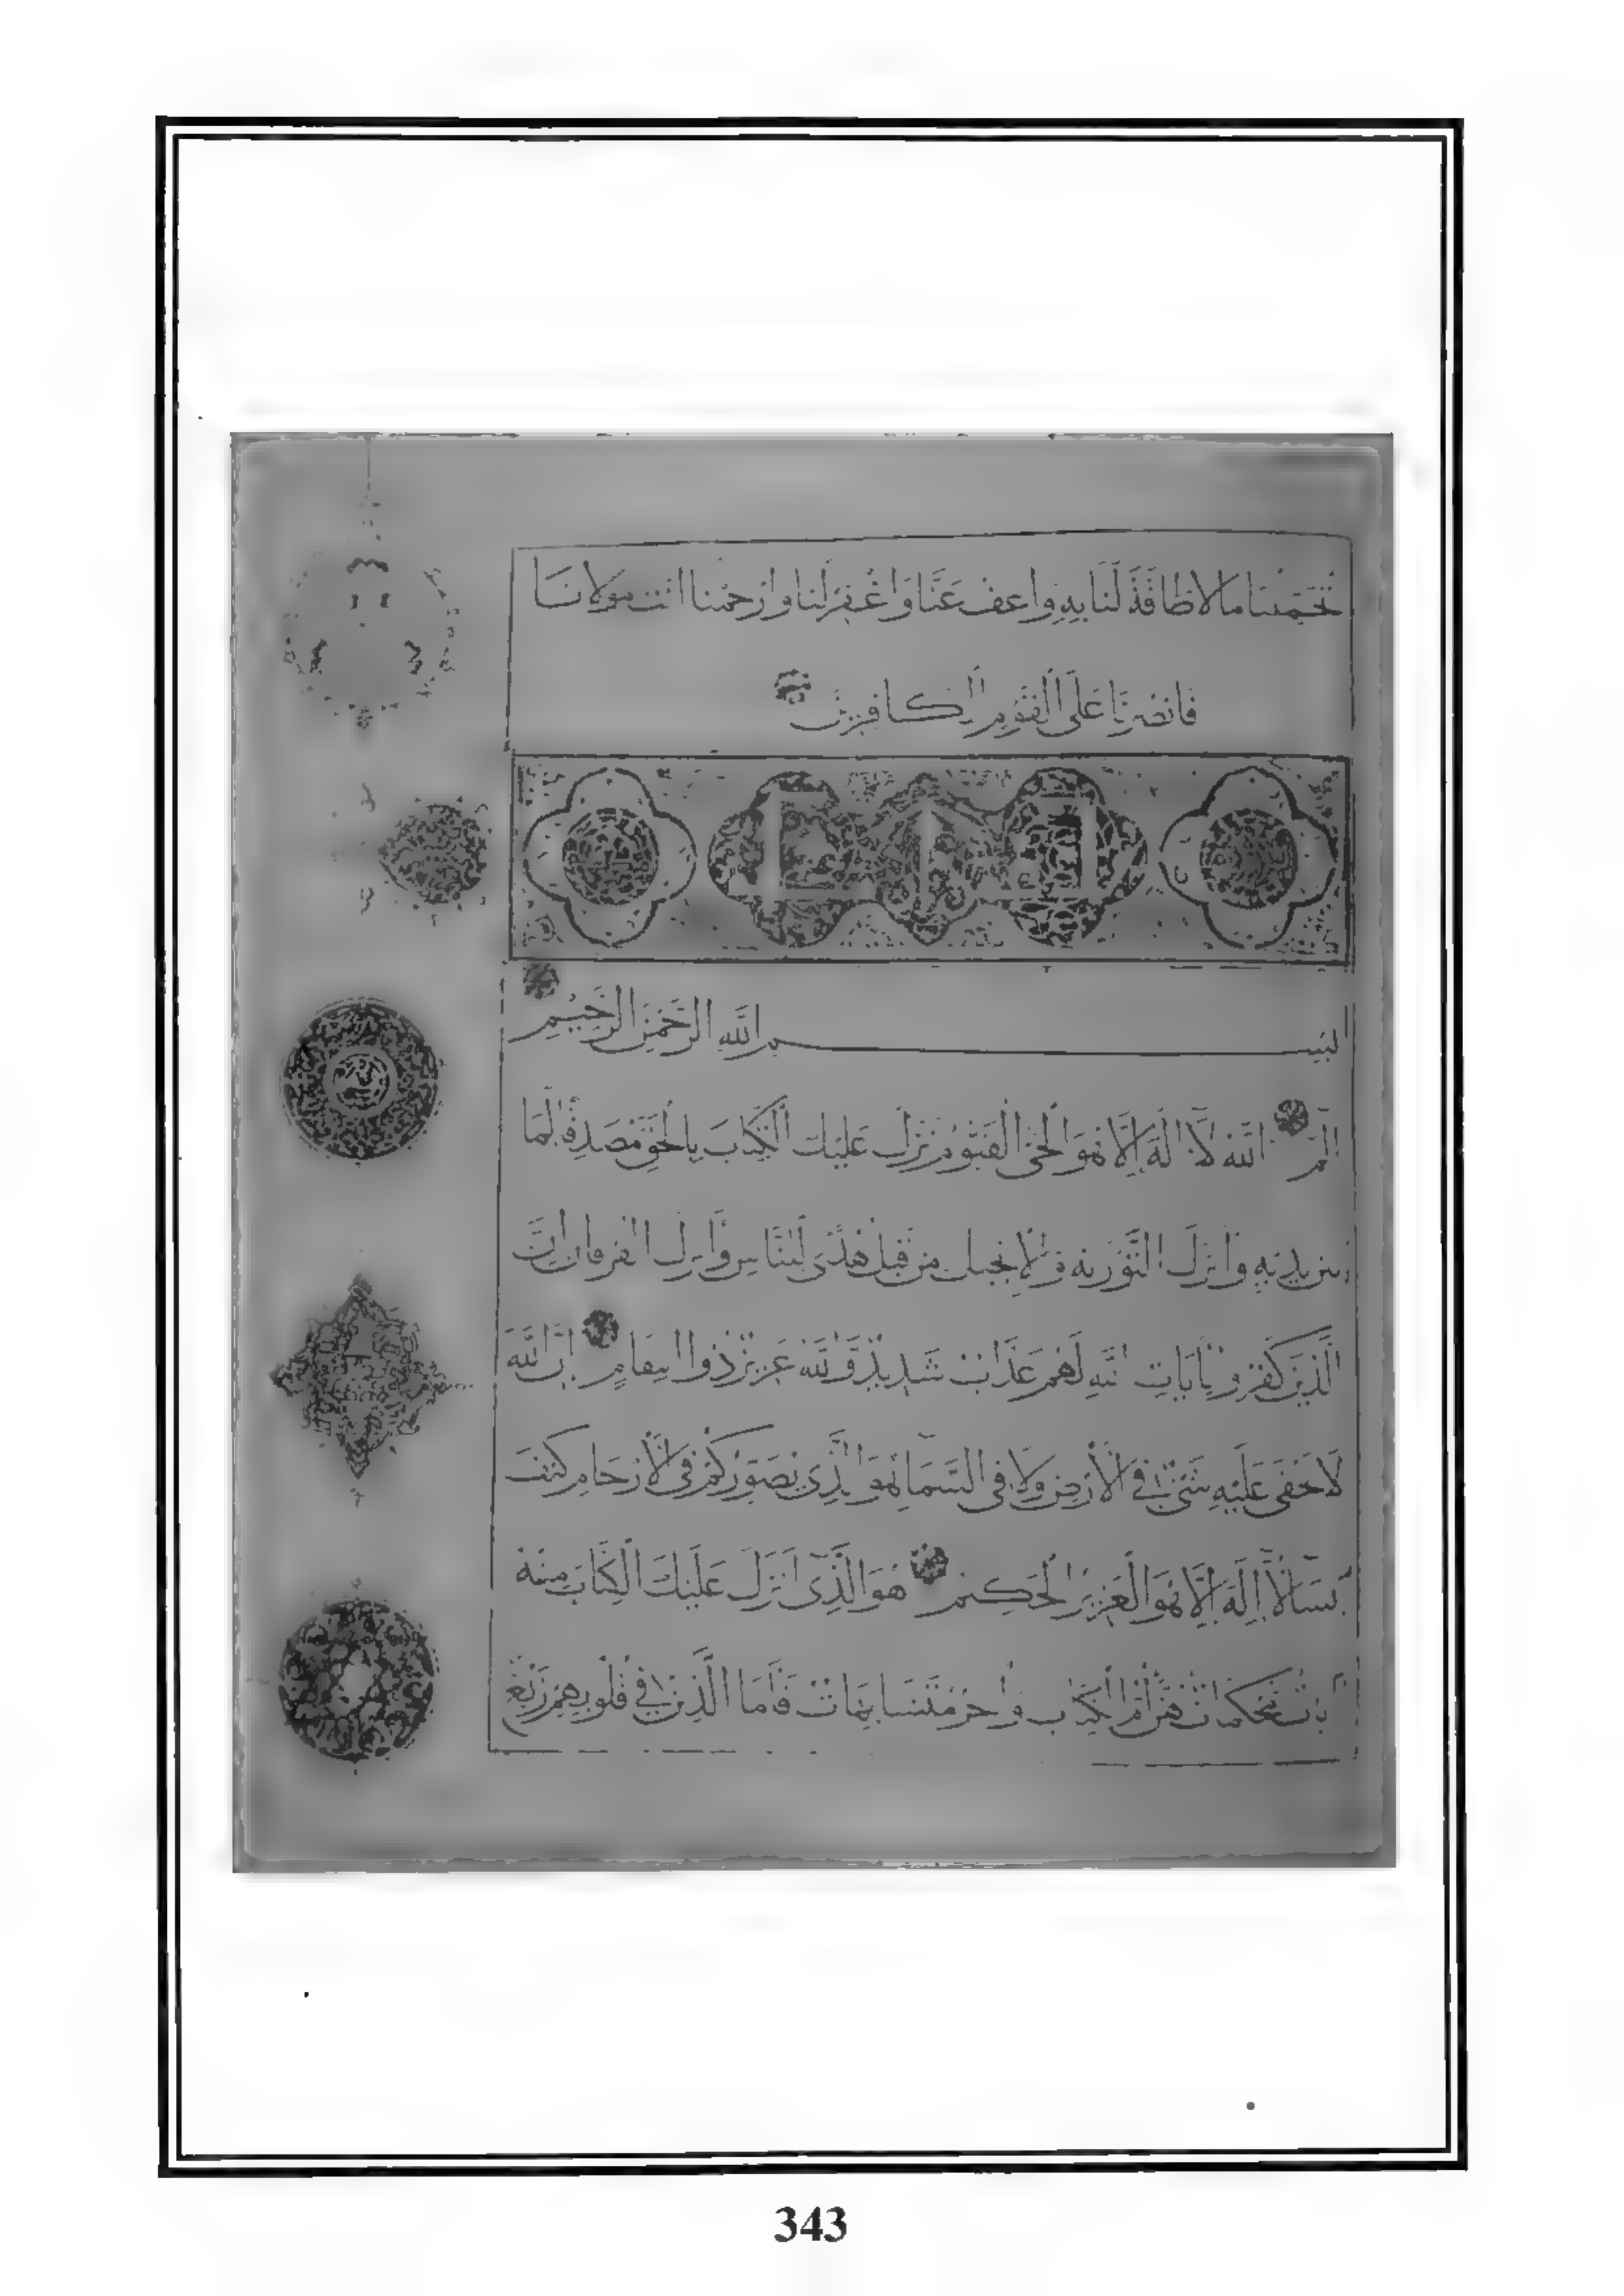 تُحَمِّلْنَا مَا لَا طَاقَةَ لَنَا بِهِ وَاعْفُ عَنَّا وَاغْفِرْ لَنَا وَارْحَمْنَا أَنْتَ مَوْلَانَا
فَانْصُرْنَا عَلَى الْقَوْمِ الْكَافِرِينَ
بِسْمِ اللَّهِ الرَّحْمَنِ الرَّحِيمِ
الم اللَّهُ لَا إِلَهَ إِلَّا هُوَ الْحَيُّ الْقَيُّومُ نَزَّلَ عَلَيْكَ الْكِتَابَ بِالْحَقِّ مُصَدِّقًا لِمَا
بَيْنَ يَدَيْهِ وَأَنْزَلَ التَّوْرَيةَ وَالْإِنْجِيلَ مِنْ قَبْلُ هُدًى لِلنَّاسِ وَأَنْزَلَ الْفُرْقَانَ إِنَّ
الَّذِينَ كَفَرُوا بِآيَاتِ اللَّهِ لَهُمْ عَذَابٌ شَدِيدٌ وَاللَّهُ عَزِيزٌ ذُو انْتِقَامٍ إِنَّ اللَّهَ
لَا يَخْفَى عَلَيْهِ شَيْءٌ فِي الْأَرْضِ وَلَا فِي السَّمَاءِ هُوَ الَّذِي يُصَوِّرُكُمْ فِي الْأَرْحَامِ كَيْفَ
يَشَاءُ لَا إِلَهَ إِلَّا هُوَ الْعَزِيزُ الْحَكِيمُ هُوَ الَّذِي أَنْزَلَ عَلَيْكَ الْكِتَابَ مِنْهُ
آيَاتٌ مُحْكَمَاتٌ هُنَّ أُمُّ الْكِتَابِ وَأُخَرُ مُتَشَابِهَاتٌ فَأَمَّا الَّذِينَ فِي قُلُوبِهِمْ زَيْغٌ
343